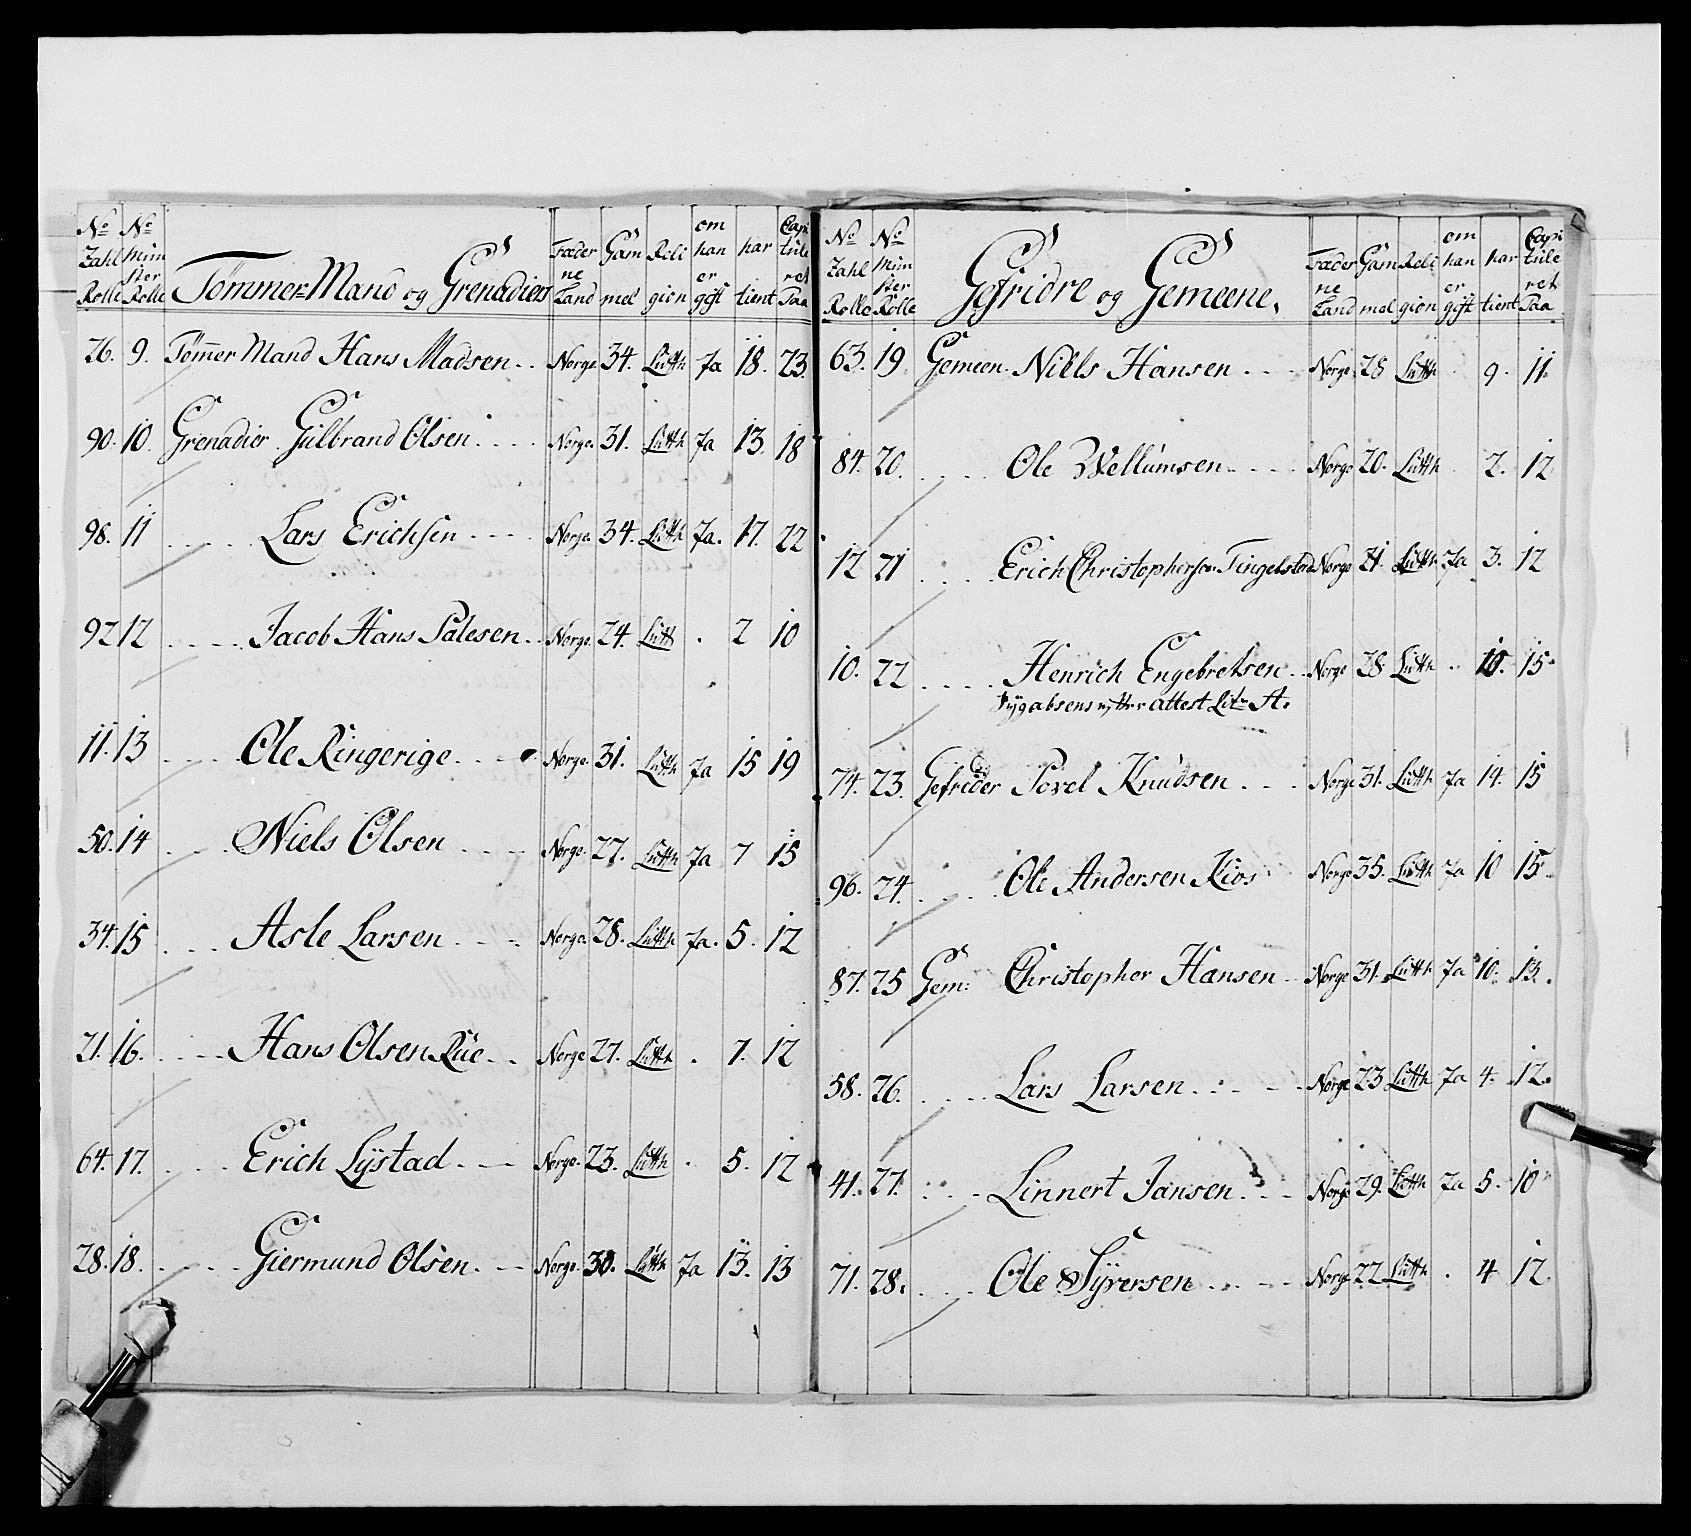 No Zahl Rolle No Mün ster Rolle Tømmer=Mand og Grenadiers Fæder ne Land Gam mel Reli gion om han er gift har tient Capi tule ret Paa
26. 9. Tømmer Mand Hans Madsen Norge 34. Lutth Ja 18. 23.
90. 10. Grenadier Gulbrand Olsen Norge. 31. Lutth Ja 13. 18
98. 11 Lars Erichsen Norge. 34. Lutth Ja. 17. 22
92 12 Jacob Hans Salesen Norge. 24. Lutt . 2 10
11. 13 Ole Ringerige Norge. 31. Lutth Ja 15 19
50. 14 Niels Olsen Norge. 27. Lutth Ja 7 15
34. 15 Asle Larsen Norge. 28. Lutth Ja. 5. 12
21. 16. Hans Olsen Rüe Norge 27. Lutth . 7. 12
64. 17. Erich Lÿstad Norge. 23. Lutth . 5. 12
28. 18. Giermund Olsen Norge. 30. Lutth Ja 13. 13
No Zahl Rolle No Mün ster Rolle Gefridre og Gemeene. Fæder ne Land Gam mel Reli gion om han er gift har tient Capi tule ret Paa
63. 19 Gemeen. Niels Hansen Norge 28 Lutth . 9. 11.
84. 20. Ole Wellumsen Norge 20. Lutth . 2. 12
12 21 Erich Christophersen Tingelstad Norge 21. Lutth Ja 3. 12
10. 22 Henrich Engebretsen Norge 28 Lutth . 10. 15.
Sÿg absens attest Litr A.
74. 23. Gefrider Povel Knudsen Norge 31. Lutth Ja 14. 15
96. 24. Ole Andersen Kios Norge 35. Lutth Ja 10 15.
87. 25 Gem: Christopher Hansen Norge 31. Lutth Ja 10. 13.
58. 26. Lars Larsen Norge 23 Lutth Ja 4. 12.
41. 27. Linnert Jansen Norge 29. Lutth Ja 5. 10
71. 28. Ole Sÿversen Norge 22 Lutth . 4 12.